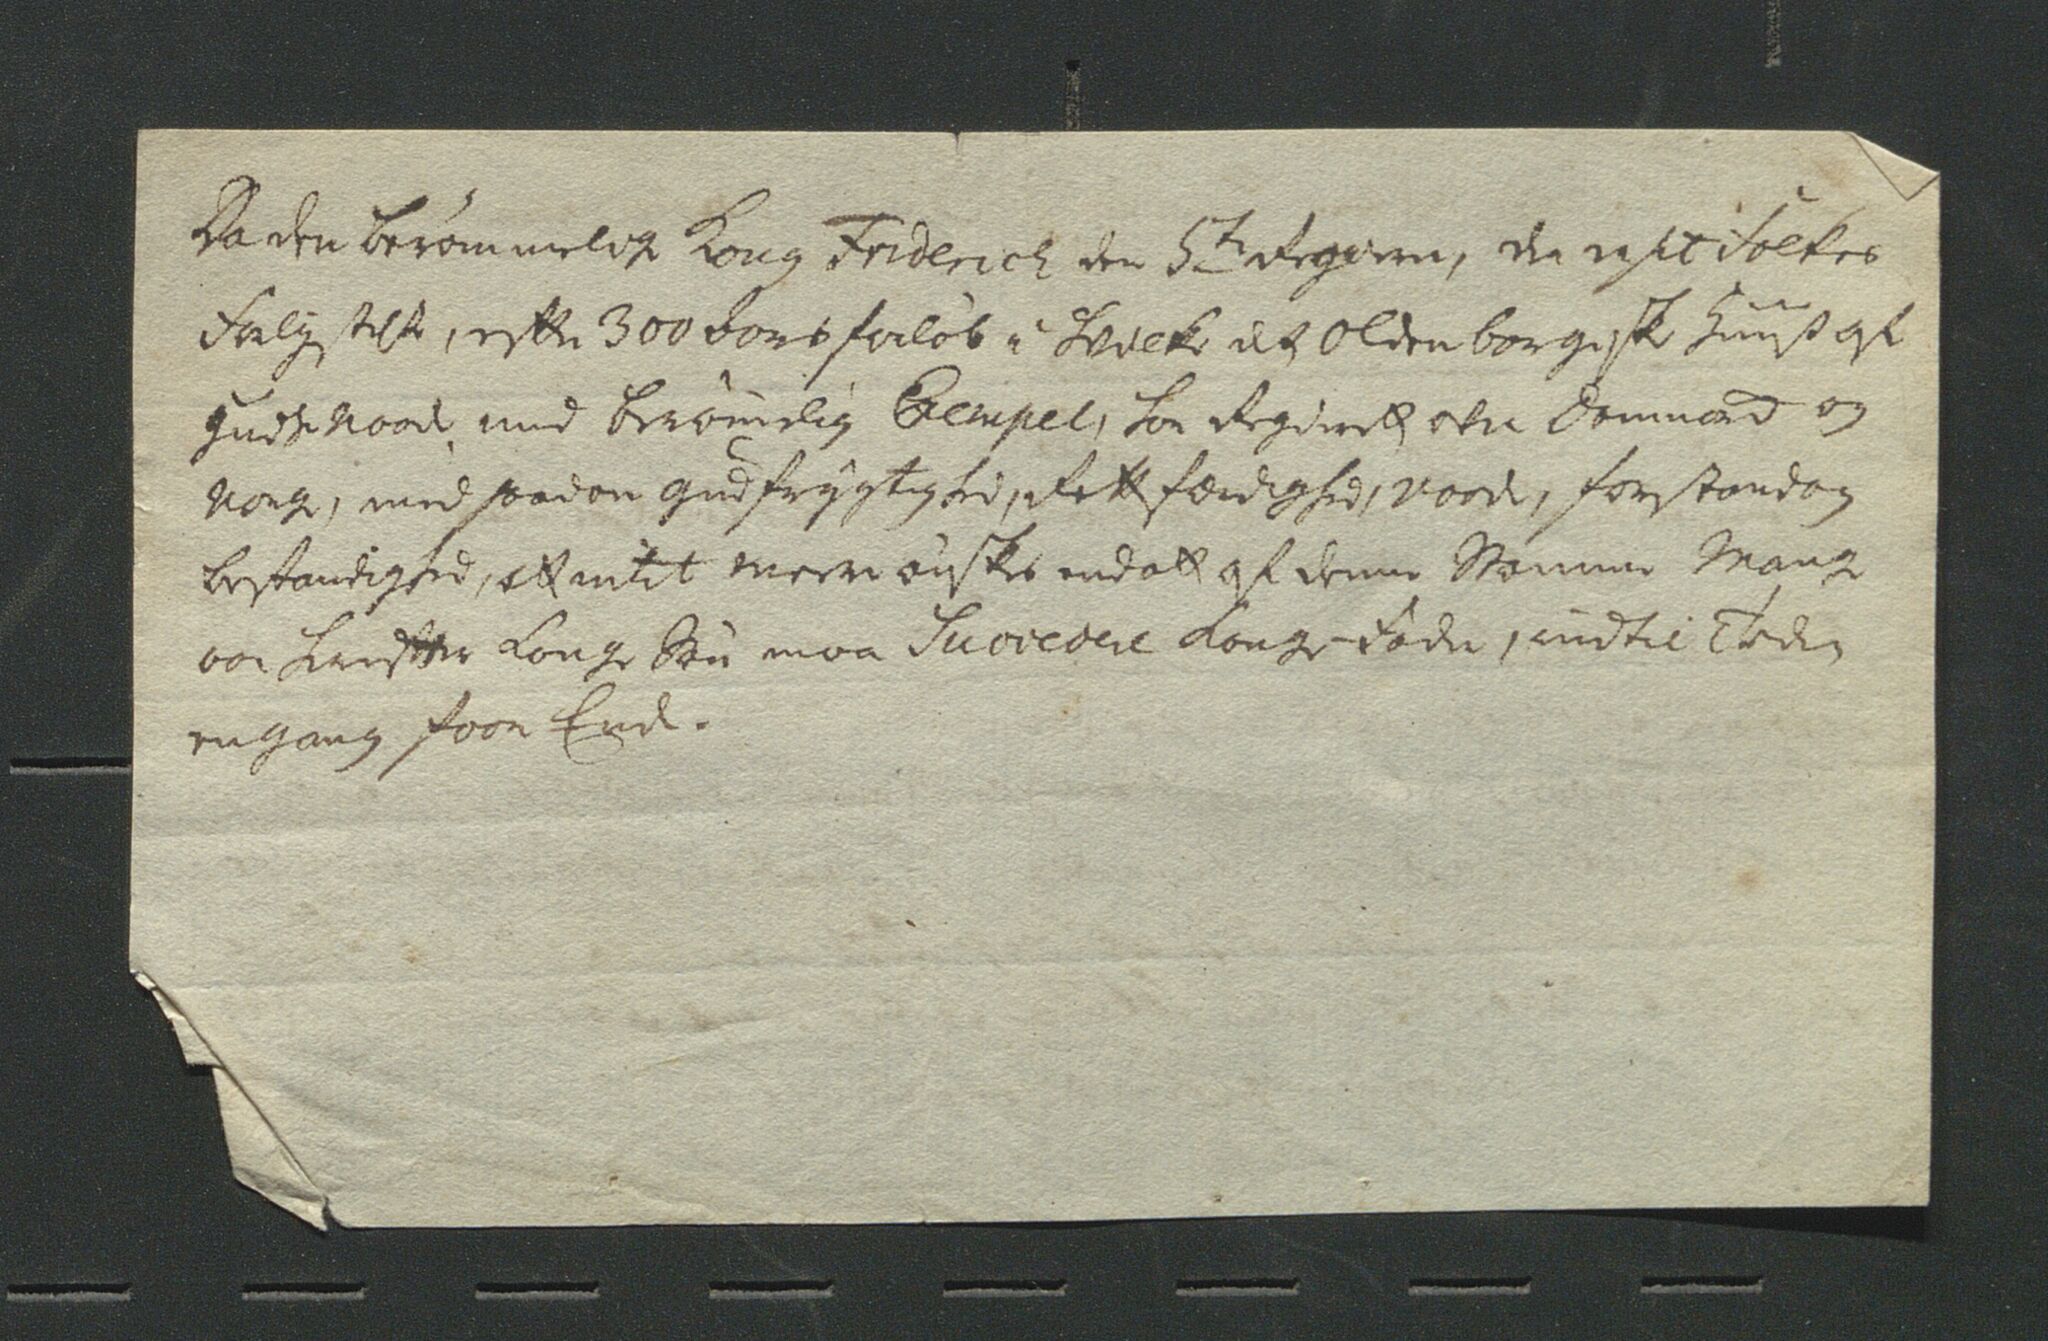 Da den berömmelige Kong Friderich den 5te Regierer, da
Folkes
, efter 300 Aars forløb i hvilke det Oldenborgiske Huus af
Guds Naade med berömelig Exempel, har Regieret over Danmark og
Norge, med saadan Gudfrygtighed, Rettfærdighed, Naade, forstand og
bestandighed, att intet meere ønskes end att af denne Stamme Mange
Konge maa Succedere Konge-Fædre, indtil Tiden
engang faar Ende.